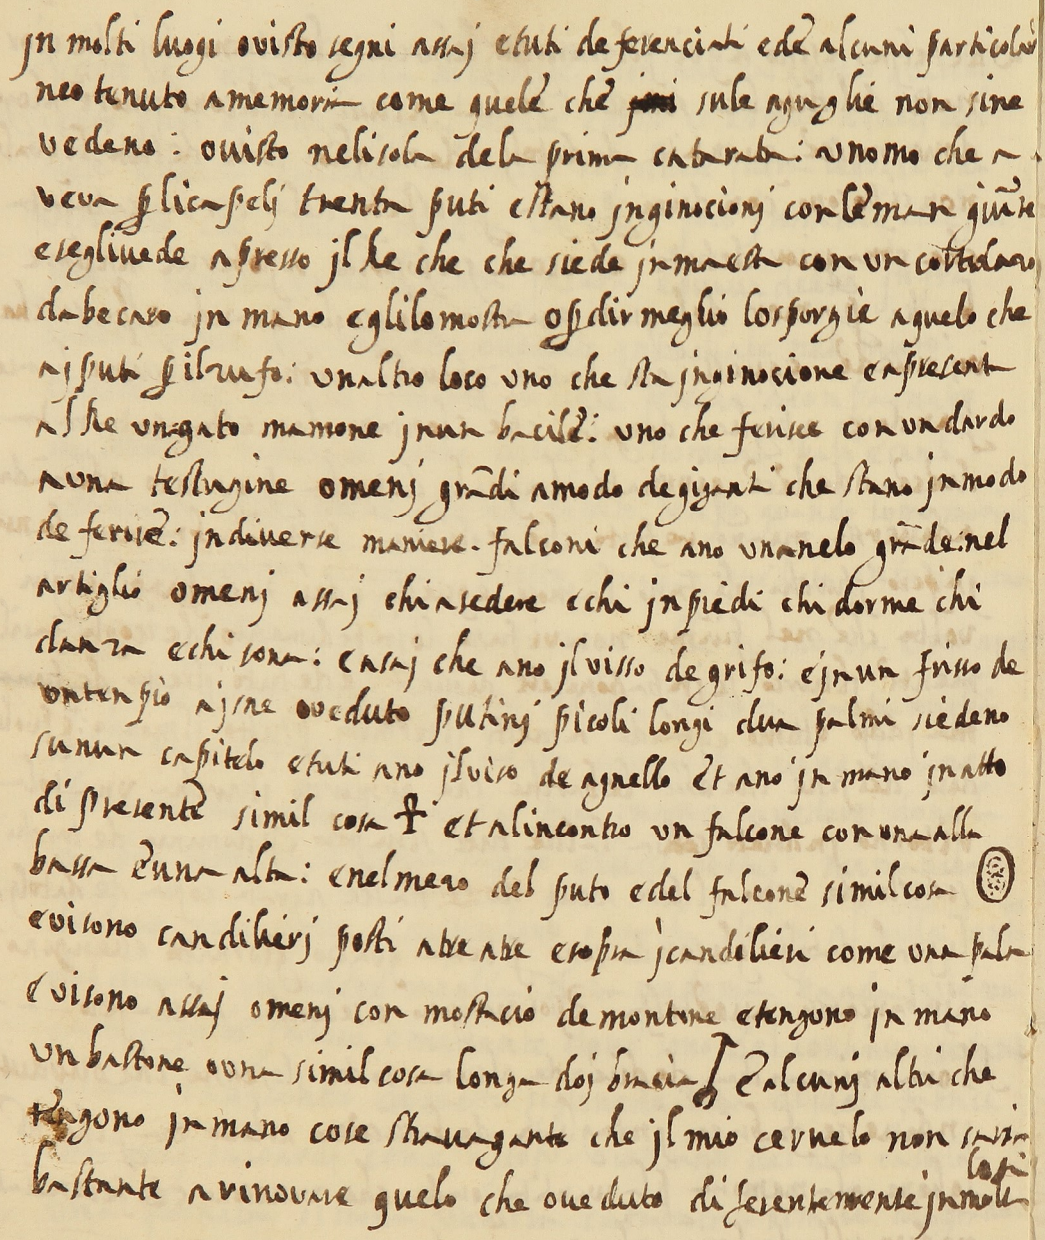 jn molti luogi ovisto segni assaj etuti deferenciati edē alcuni particolar
neo tenuto amemoria come quelē chē sule aguglie non sine
vedeno : ovisto nelisola dela prima catarata: vnomo che a
veva p̱ licapelj trenta puti estano jnginocionj conlē man giūte
eseglivede apresso jl Re che che siede jn maesta con vn cortelazo
dabecaro jn mano eglilomostra o p̱ dir meglio losporgie aquelo che
aj puti p̱ il zufo: vnaltro loco vno che sta jnginocione eapresenta
al Re vngato mamone jnun bacilē: vno che ferisce con vn dardo
auna testugine omenj grādi amodo degiganti che stano jnmodo
de ferirē: jndiverse maniere. falconi che ano vnanelo grāde nel
artiglio omenj assaj chi asedere echi jnpiedi chi dorme chi
danza echi sona: easaj che ano jl visso de grifo: ējn un frisso de
vntenpio ajsne oveduto putinj picoli longi dua palmi siedeno
sunun capitelo etuti ano jl viso de agnello Et ano jn mano jn atto
di presentē simil cosa ☥ et alincontro vn falcone con una alla
bassa ē una alta: enelmezo del puto edel falconē simil cosa
evisono candilierj posti atre atre esopra jcandelieri come una pala
ēvisono assaj omenj con mostacio demontone etengono jn mano
un bastone ovna simil cosa longa doj bracia ē alcunj altri che
tengono jn mano cose stravagante che jl mio cervelo non saria
bastante arinovare quelo che oveduto diferentemente jnmolti
logi